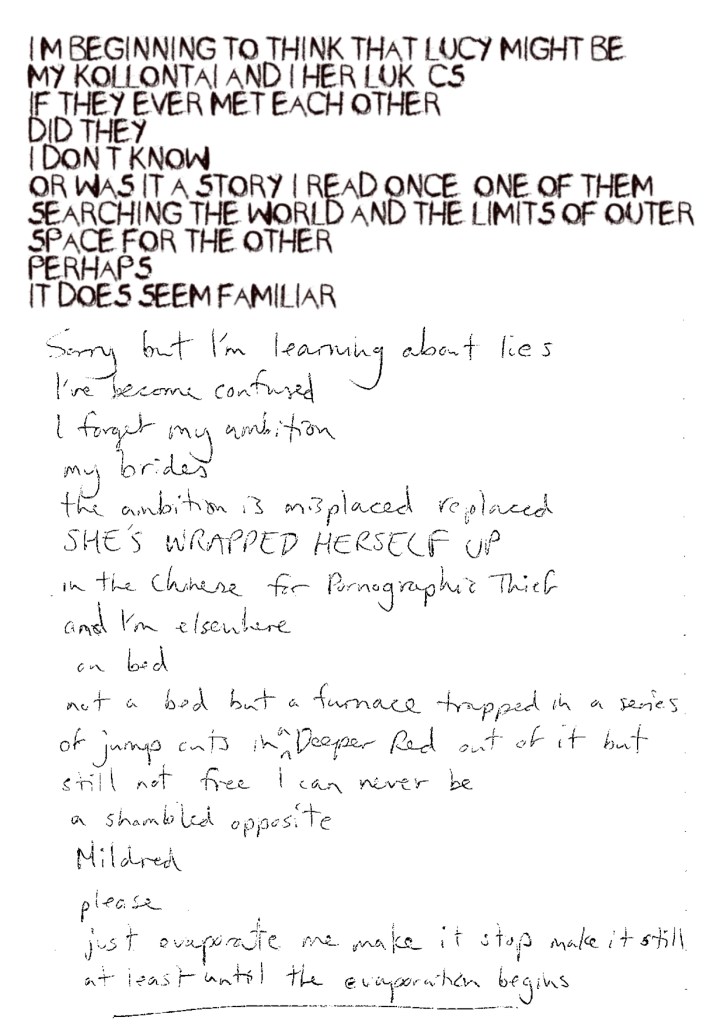 I M BEGINNING TO THINK THAT LUCY MIGHT BE
MY KOLLONTAI AND I HER LUK CS
IF THEY EVER MET EACH OTHER
DID THEY
I DON T KNOW
OR WAS IT A STORY I READ ONCE ONE OF THEM
SEARCHING THE WORLD AND THE LIMITS OF OUTER
SPACE FOR THE OTHER
PERHAPS
IT DOES SEEM FAMILIAR
Sorry but I'm learning about lies
I've become confused
I forget my ambition
my brides
the ambition is misplaced replaced
SHE'S WRAPPED HERSELF UP
in the Chinese for Pornographic Thief
and I'm elsewhere
on bed
not a bed but a furnace trapped in a series
of jump cuts in a Deeper Red out of it but
still not free I can never be
a shambled opposite
Mildred
please
just evaporate me make it stop make it still
at least until the evaporation begins